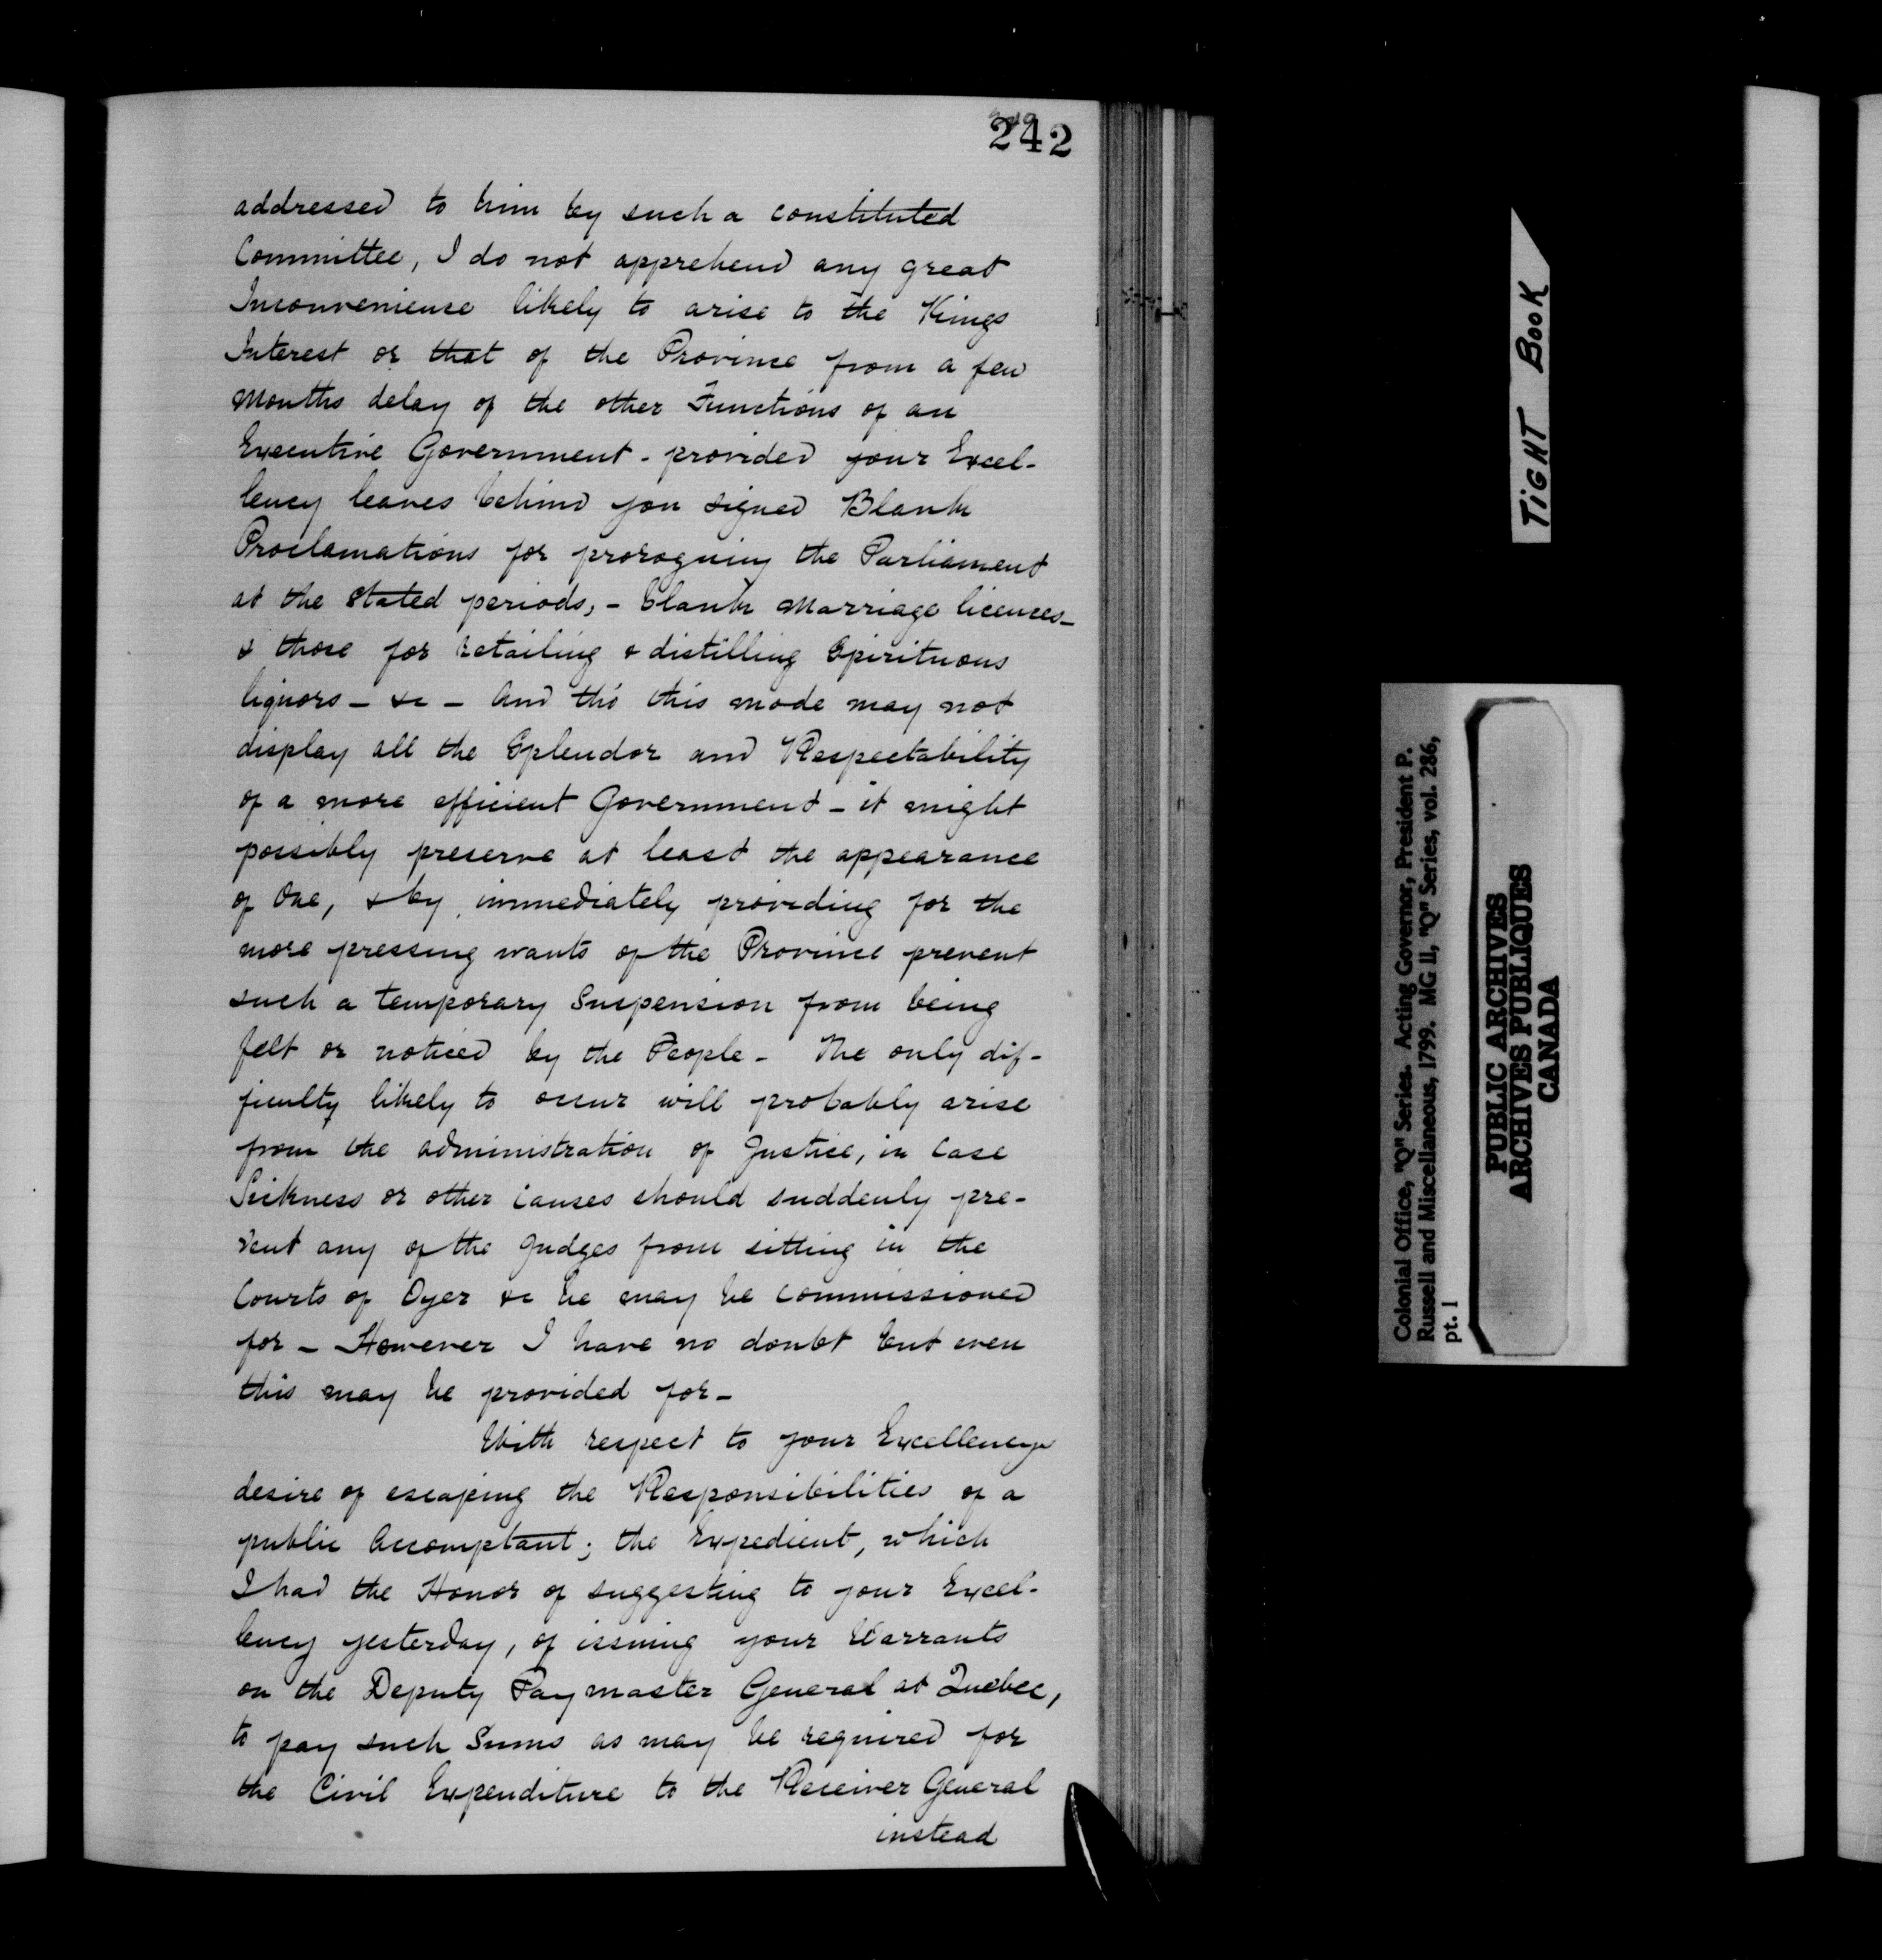 242
addressed to him by such a constituted
Committee, I do not apprehend any great
Inconvenience likely to arise to the Kings
Interest or that of the Province from a few
Months delay of the other Functions of an
Executive Government - provided your Excel-
lency leaves behind you signed Blank
Proclamations for proroguing the Parliament
at the stated periods, - blank Marriage licences -
& those for retailing & distilling Spirituous
liquors - &c - And tho' this mode may not
display all the Splendor and Respectability
of a more efficient Government - it might
possibly preserve at least the appearance
of One, & by immediately providing for the
more pressing wants of the Province prevent
such a temporary Suspension from being
felt or noticed by the People - The only dif-
ficulty likely to occur will probably arise
from the administration of Justice, in Case
Sickness or other Causes should suddenly pre-
vent any of the Judges from sitting in the
Courts of Oyer &c he may be commissioned
for - However I have no doubt but even
this may be provided for -
With respect to your Excellencys
desire of escaping the Responsibilities of a
public Accomptant; the Expedient, which
I had the Honor of suggesting to your Excel-
lency yesterday, of issuing your Warrants
on the Deputy Paymaster General at Quebec,
to pay such Sums as may be required for
the Civil Expenditure to the Receiver General
instead
TIGHT BOOK
Colonial Office, "Q" Series. Acting Governor, President P.
Russell and Miscellaneous, 1799. MG 11, "Q" Series, vol. 286,
pt. 1
PUBLIC ARCHIVES
ARCHIVES PUBLIQUES
CANADA